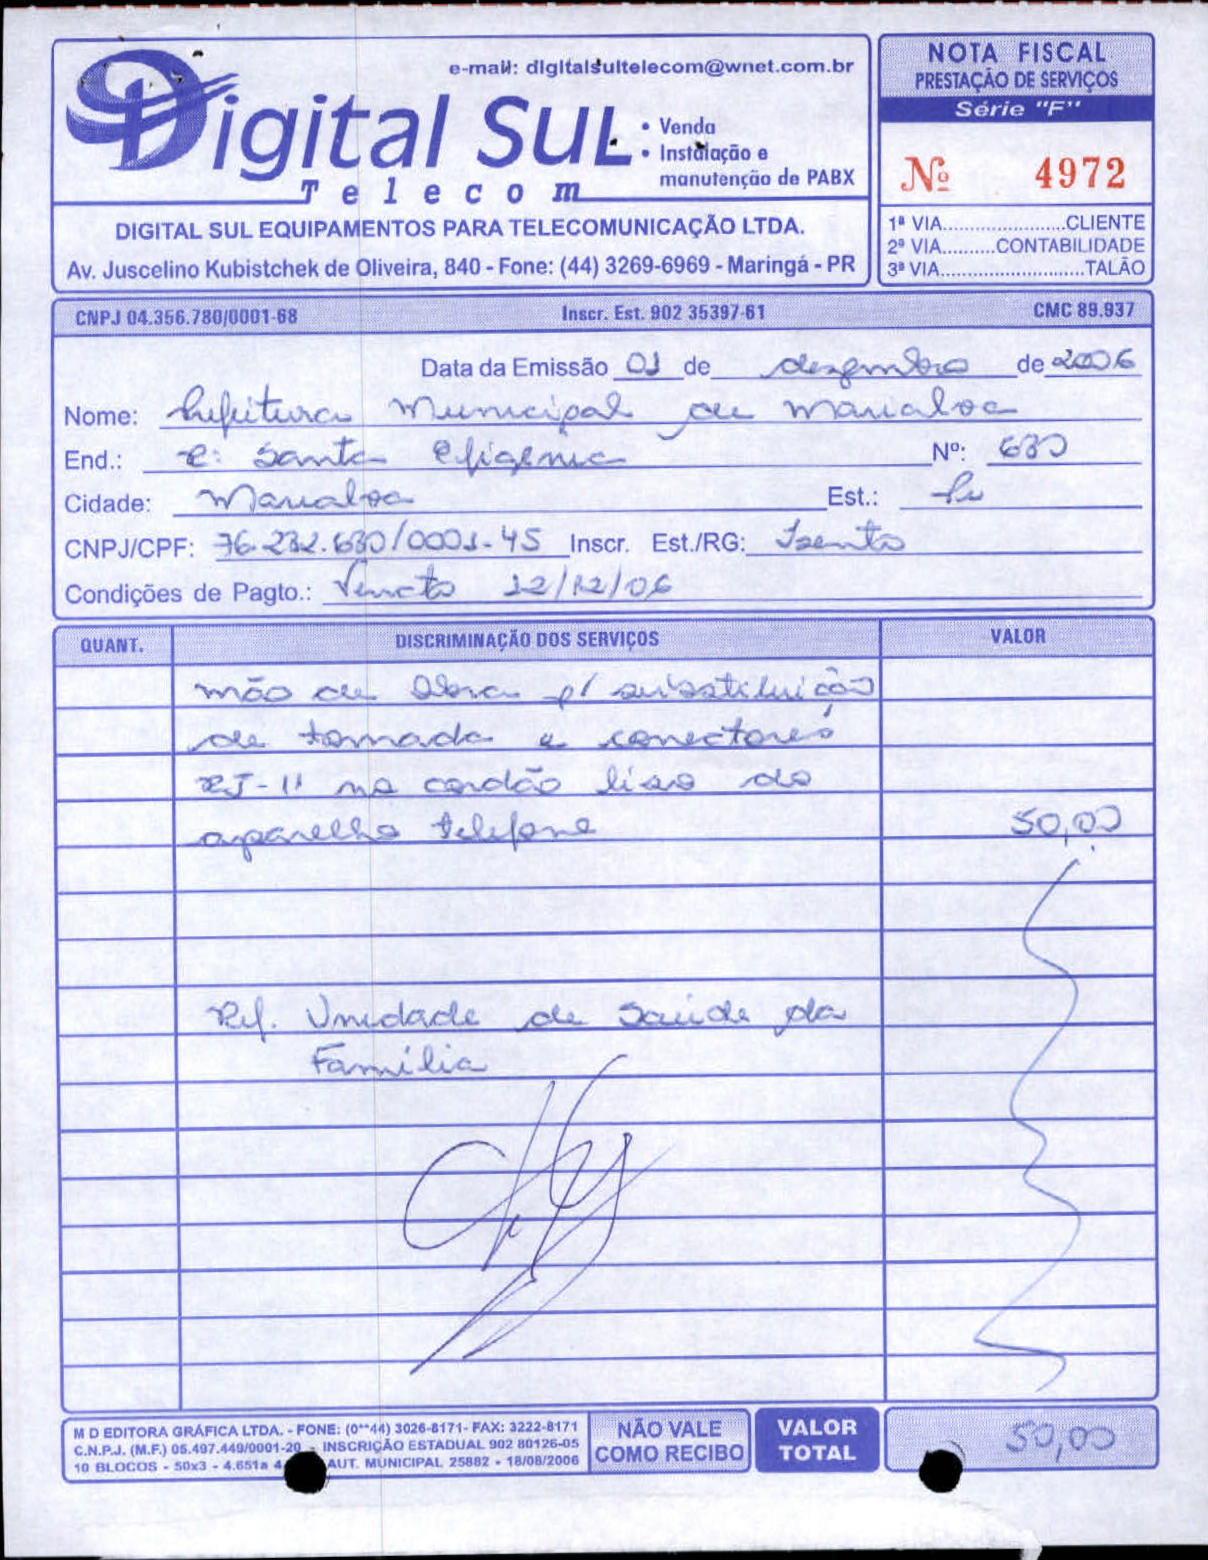 e-mail: digitalsultelecom@wnet.com.br
Digital Sul
Telecom
• Venda
• Instalação e
manutenção de PABX
DIGITAL SUL EQUIPAMENTOS PARA TELECOMUNICAÇÃO LTDA.
Av. Juscelino Kubistchek de Oliveira, 840 - Fone: (44) 3269-6969 - Maringá - PR
NOTA FISCAL
PRESTAÇÃO DE SERVIÇOS
Série "F"
Nº 4972
1ª VIA......................CLIENTE
2ª VIA..........CONTABILIDADE
3ª VIA..........................TALÃO
CNPJ 04.356.780/0001-68 Inscr. Est. 902 35397-61 CMC 89.937
Data da Emissão 01 de dezembro de 2006
Nome: Prefeitura Municipal de Marialva
End.: R: Santa Efigenia Nº: 680
Cidade: Marialva Est.: Pr
CNPJ/CPF: 76.282.680/0001-45 Inscr. Est./RG: Isento
Condições de Pagto.: Vencto 12/12/06
QUANT. DISCRIMINAÇÃO DOS SERVIÇOS VALOR
mão de obra p/ substituição
de tomada e conectores
RJ-11 no cordão liso do
aparelho telefone 50,00
Ref. Unidade de Saúde da
Família
M D EDITORA GRÁFICA LTDA. - FONE: (0**44) 3026-8171- FAX: 3222-8171
C.N.P.J. (M.F.) 05.497.449/0001-20 - INSCRIÇÃO ESTADUAL 902 80126-05
10 BLOCOS - 50x3 - 4.651a 4 AUT. MUNICIPAL 25882 - 18/08/2006
NÃO VALE
COMO RECIBO
VALOR
TOTAL
50,00